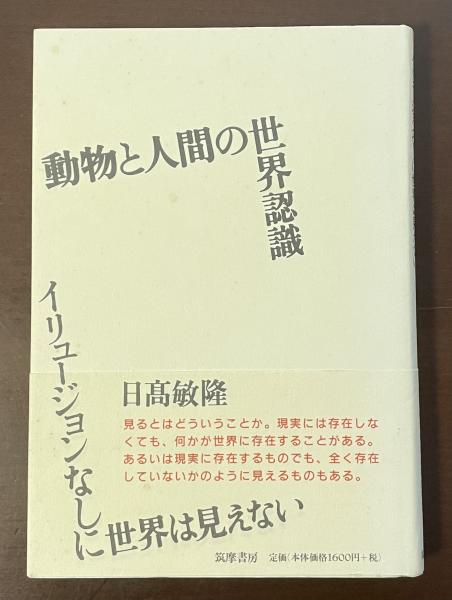 動物と人間の世界認識
イリュージョンなしに世界は見えない
日髙敏隆
見るとはどういうことか。現実には存在しな
くても、何かが世界に存在することがある。
あるいは現実に存在するものでも、全く存在
していないかのように見えるものもある。
筑摩書房 定価(本体価格1600円+税)